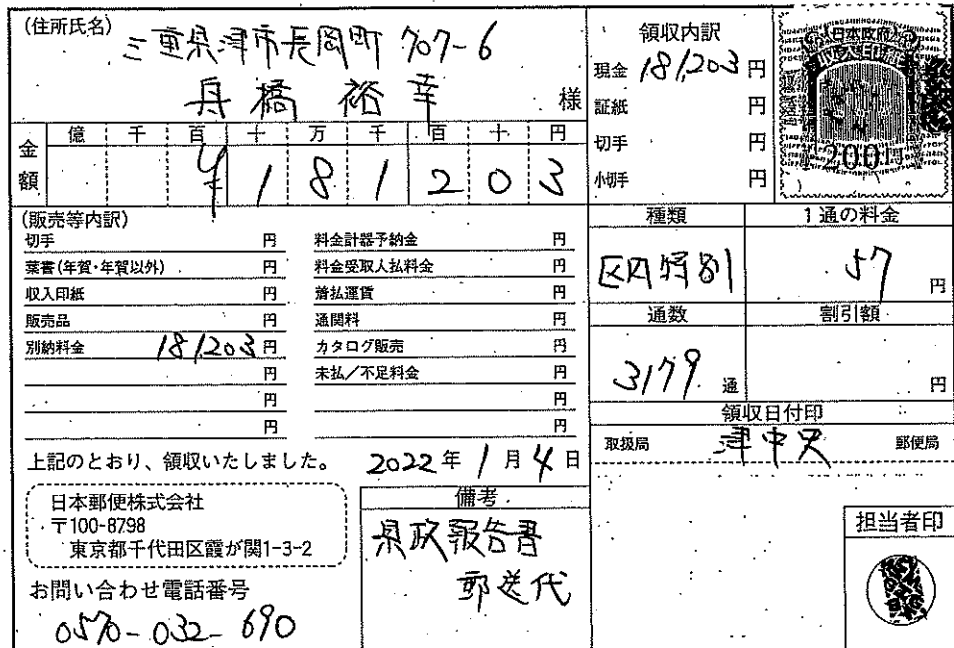 (住所氏名)
三重県津市長岡町 707-6
舟橋 裕幸 様
領収内訳
現金 181,203 円
証紙 円
切手 円
小切手 円
日本政府
収入印紙
200円
金額
億 千 百 十 万 千 百 十 円
¥ 1 8 1 2 0 3
(販売等内訳)
切手 円 料金計器予納金 円
葉書(年賀・年賀以外) 円 料金受取人払料金 円
収入印紙 円 着払運賃 円
販売品 円 通関料 円
別納料金 181,203 円 カタログ販売 円
円 未払/不足料金 円
円 円
円 円
種類 1通の料金
区内特別 57 円
通数 割引額
3179 通 円
領収日付印
取扱局 津中央 郵便局
上記のとおり、領収いたしました。 2022年 1月 4日
日本郵便株式会社
〒100-8798
東京都千代田区霞が関1-3-2
お問い合わせ電話番号
0570-032-690
備考
県政報告書
郵送代
担当者印